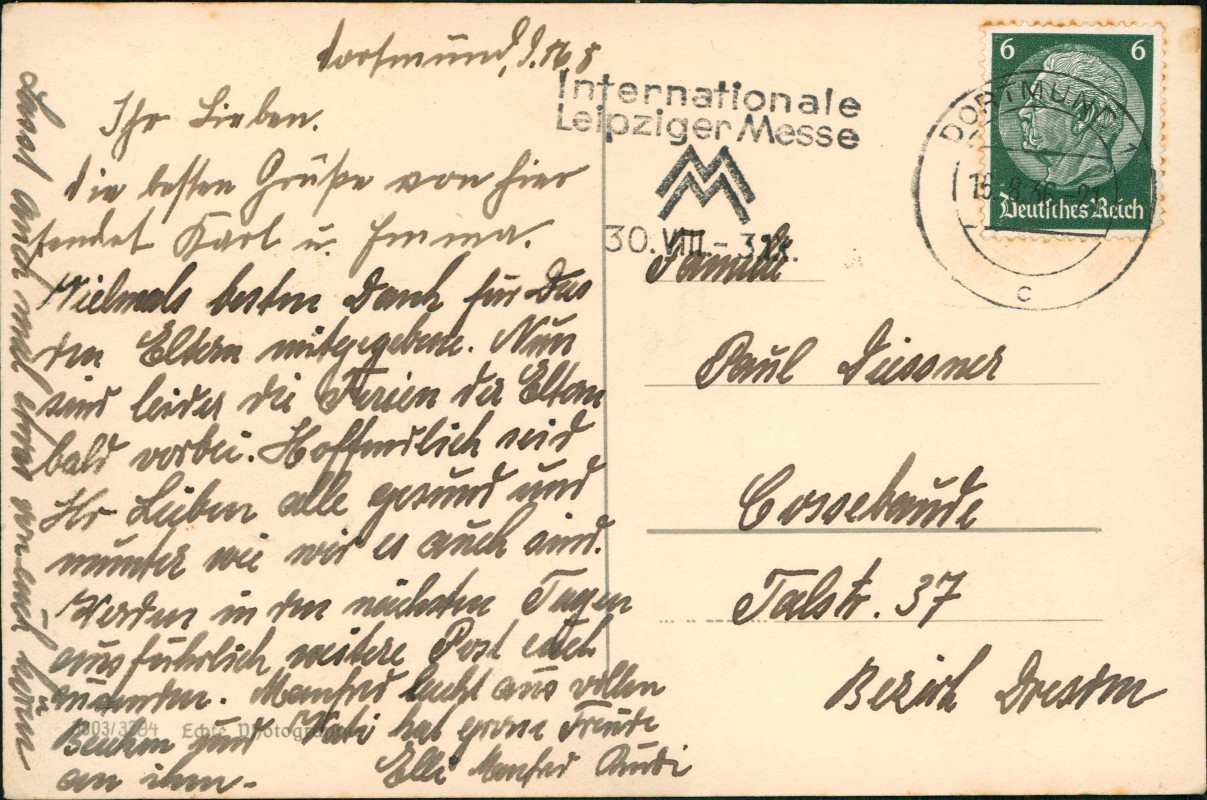 Dortmund, d. 16.8
Ihr Lieben.
die besten Grüße von hier
sendet Karl u. Emma.
Vielmals besten Dank für das
den Eltern mitgegebene. Nun
sind leider die Ferien der Eltern
bald vorbei. Hoffendlich seid
Ihr Lieben alle gesund und
munter wie wir es auch sind.
Werden in den nächsten Tagen
ausführlich weitere Post euch
zusenden. Manfred lacht aus vollen
Backen und Vati hat grosse Freude
an ihm.-
Elli Manfred Rudi
Lasst auch mal etwas von euch hören
3003/3294 Echte Photographie
Internationale
Leipziger Messe
MM
30. VIII.- 3.IX.
DORTMUND 1
15.8.36-21
c
6 6
Deutsches Reich
Familie
Paul Diessner
Cossebaude
Talstr. 37
Bezirk Dresden